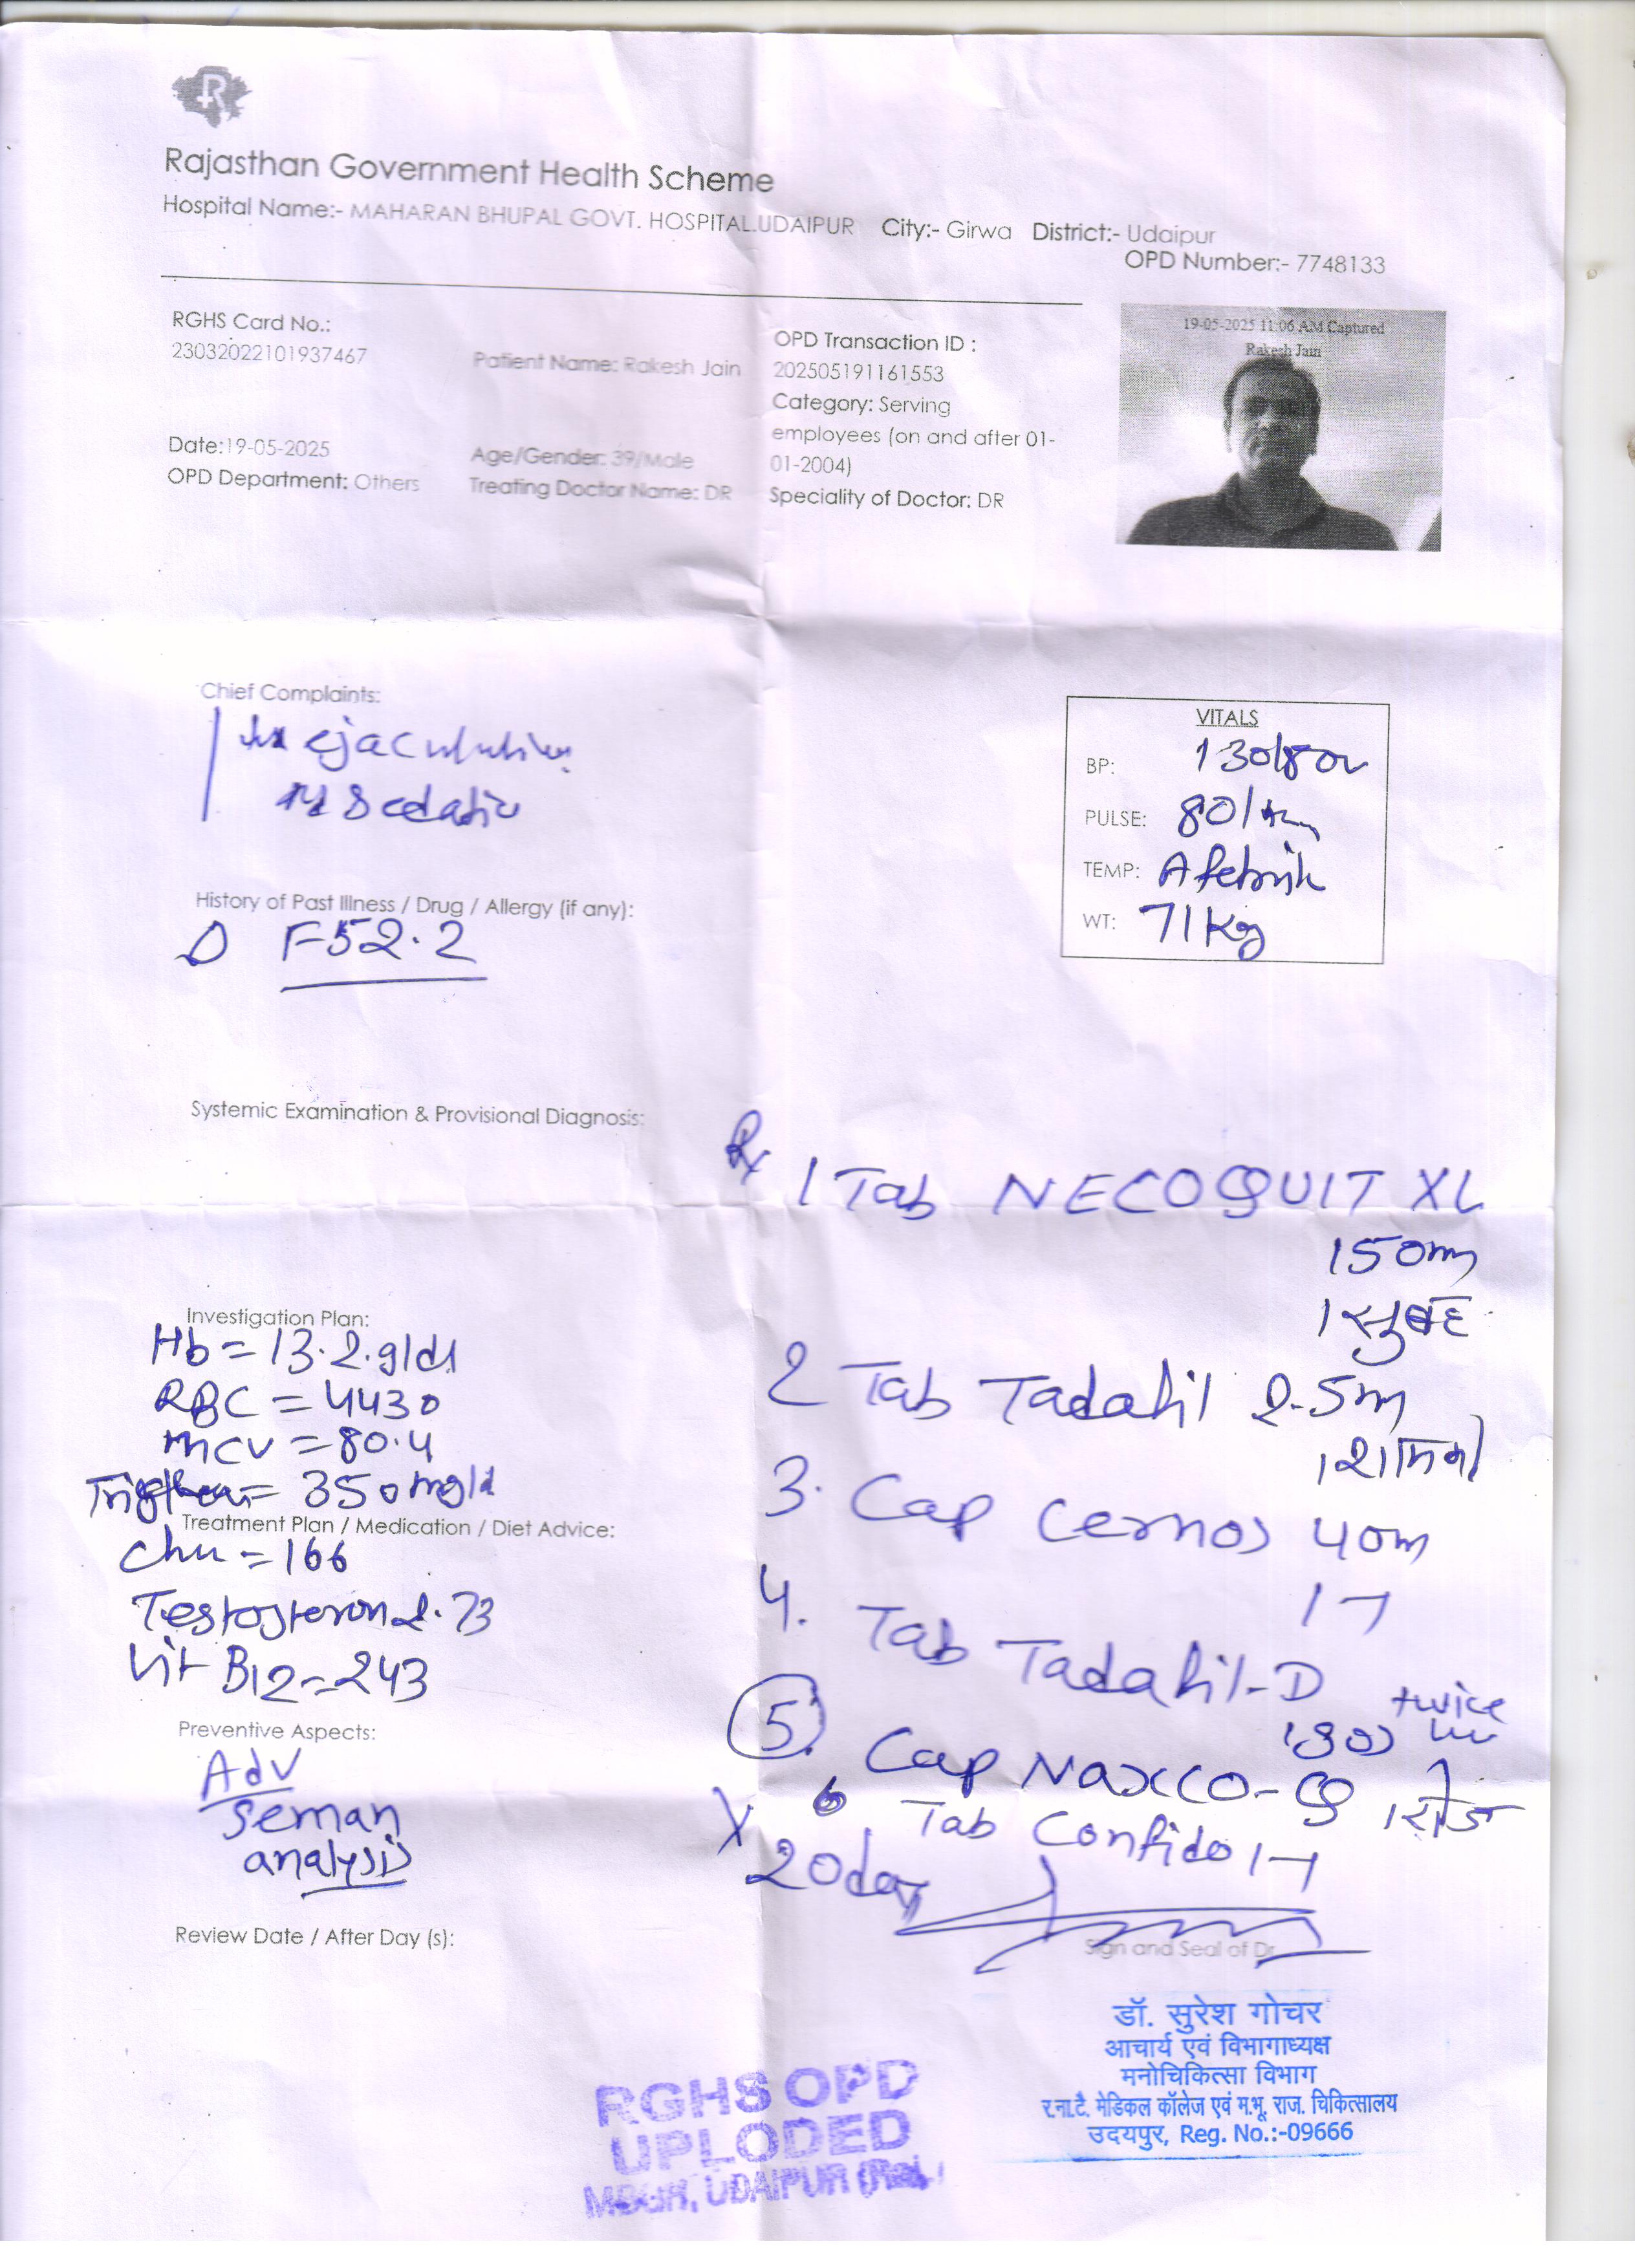 Rajasthan Government Health Scheme
Hospital Name:- MAHARAN BHUPAL GOVT. HOSPITAL.UDAIPUR City:- Girwa District:- Udaipur
OPD Number:- 7748133
RGHS Card No.:
23032022101937467
Patient Name: Rakesh Jain
OPD Transaction ID :
202505191161553
Category: Serving
employees (on and after 01-
01-2004)
Date:19-05-2025
Age/Gender: 39/Male
OPD Department: Others
Treating Doctor Name: DR
Speciality of Doctor: DR
19-05-2025 11:06 AM Captured
Rakesh Jain
Chief Complaints:
VITALS
BP: 130/80
PULSE: 80/
TEMP: Afebrile
WT: 71kg
History of Past Illness / Drug / Allergy (if any):
F52.2
Systemic Examination & Provisional Diagnosis:
Rx
1 Tab NECOQUIT XL
150m
1 सुबह
2 Tab Tadafil 2.5m
1 शाम को
3. Cap Cernos 40m
1-1
4. Tab Tadafil-D
twice
5. Cap Naxco-G 1 रोज
6 Tab Confido 1-1
X 20day
Investigation Plan:
Hb = 13.2.g/dl
RBC = 4430
MCV = 80.4
= 350mg/d
Treatment Plan / Medication / Diet Advice:
= 166
Testosteron 2.73
Vit B12 = 243
Preventive Aspects:
Adv
Seman
analysis
Review Date / After Day (s):
Sign and Seal of Dr
डॉ. सुरेश गोचर
आचार्य एवं विभागाध्यक्ष
मनोचिकित्सा विभाग
र.ना.टै. मेडिकल कॉलेज एवं म.भू. राज. चिकित्सालय
उदयपुर, Reg. No.:-09666
RGHS OPD
UPLODED
MBGH, UDAIPUR (Raj.)